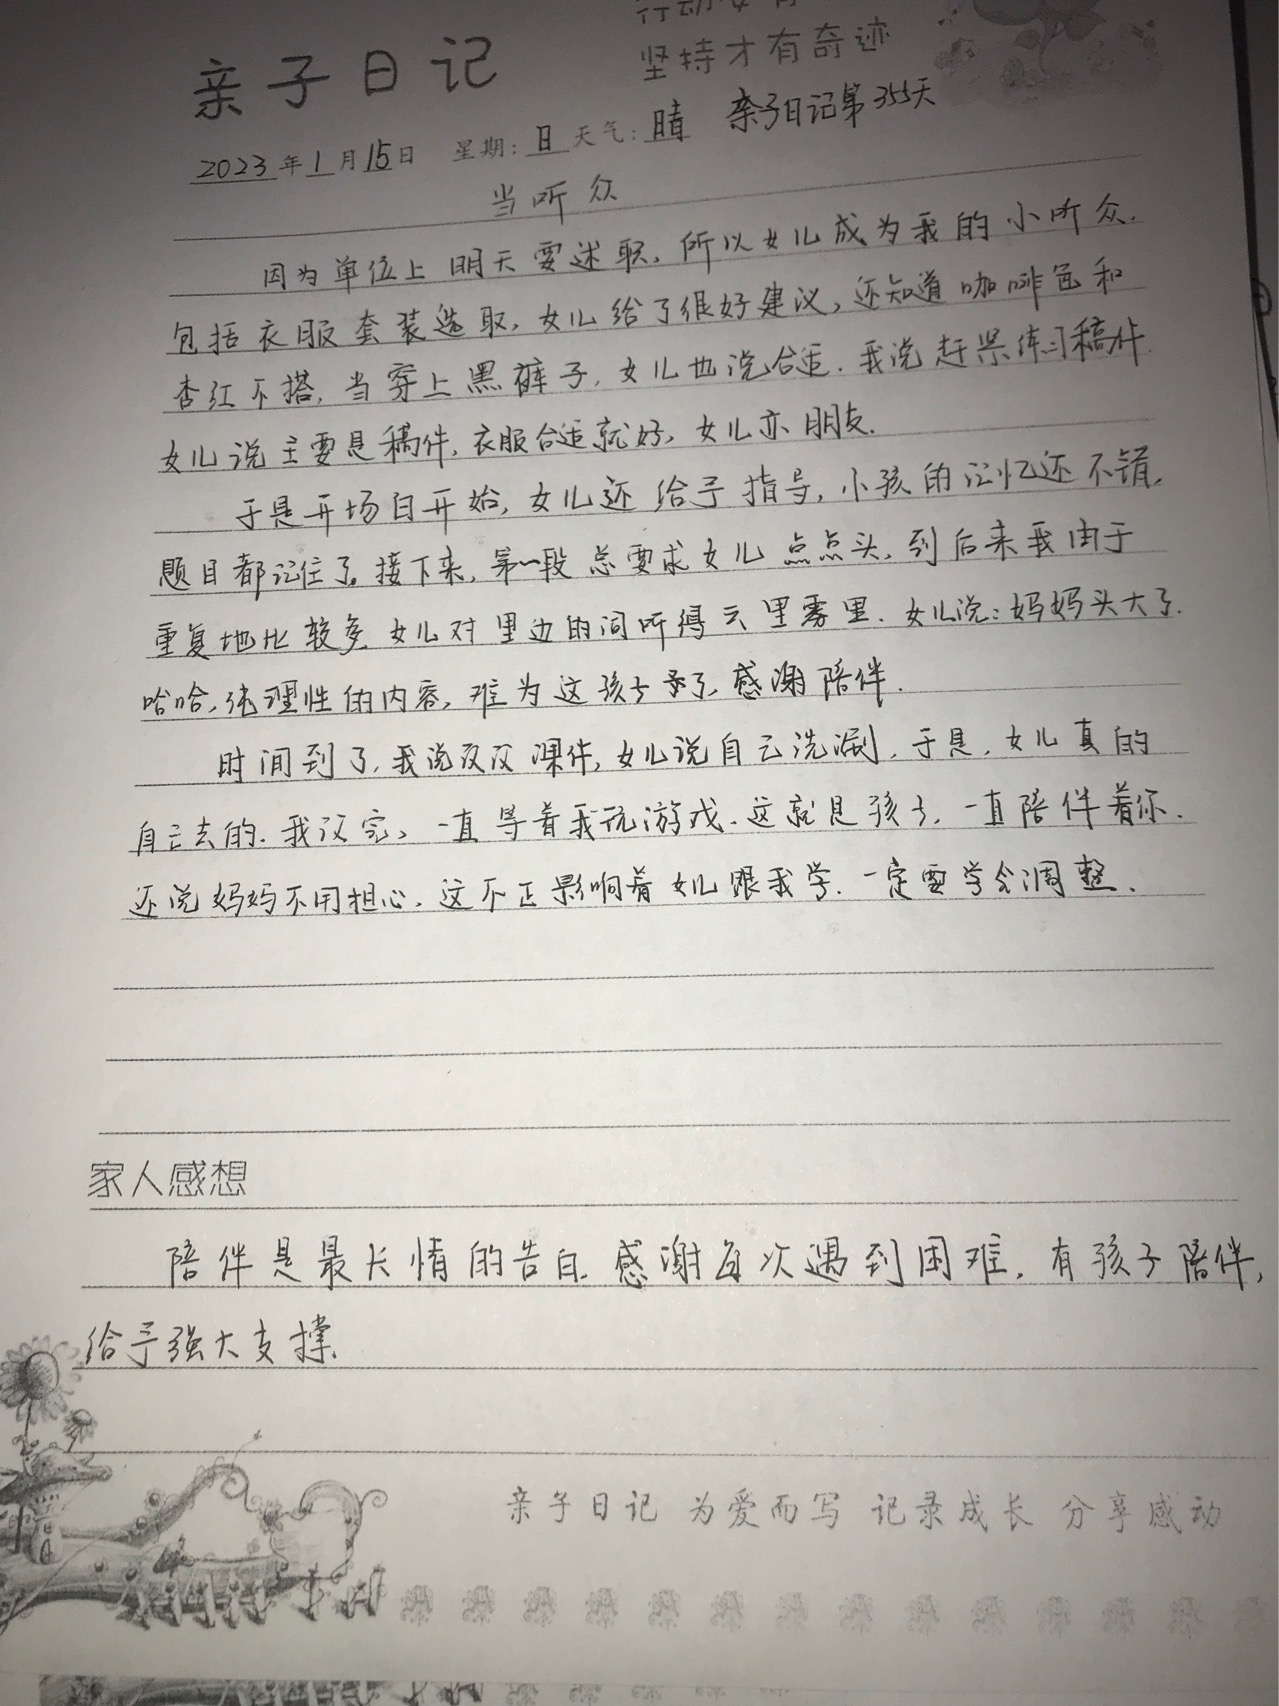 坚持才有奇迹
亲子日记
2023年1月15日 星期:日 天气:晴 亲子日记第355天
当听众
因为单位上明天要述职,所以女儿成为我的小听众.
包括衣服套装选取,女儿给了很好建议,还知道咖啡色和
杏红不搭,当穿上黑裤子,女儿也说合适.我说赶紧练习稿件.
女儿说主要是稿件,衣服合适就好,女儿亦朋友.
于是开场白开始,女儿还给予指导,小孩的记忆还不错,
题目都记住了。接下来,第一段总要求女儿点点头,到后来我由于
重复地比较多,女儿对里边的词听得云里雾里.女儿说:妈妈头大了.
哈哈,纯理性的内容,难为这孩子了,感谢陪伴.
时间到了,我说改改课件,女儿说自己洗涮,于是,女儿真的
自己去的.我改完,一直等着我玩游戏.这就是孩子,一直陪伴着你.
还说妈妈不用担心.这不正影响着女儿跟我学.一定要学会调整.
家人感想
陪伴是最长情的告白.感谢每次遇到困难,有孩子陪伴,
给予强大支撑.
亲子日记 为爱而写 记录成长 分享感动